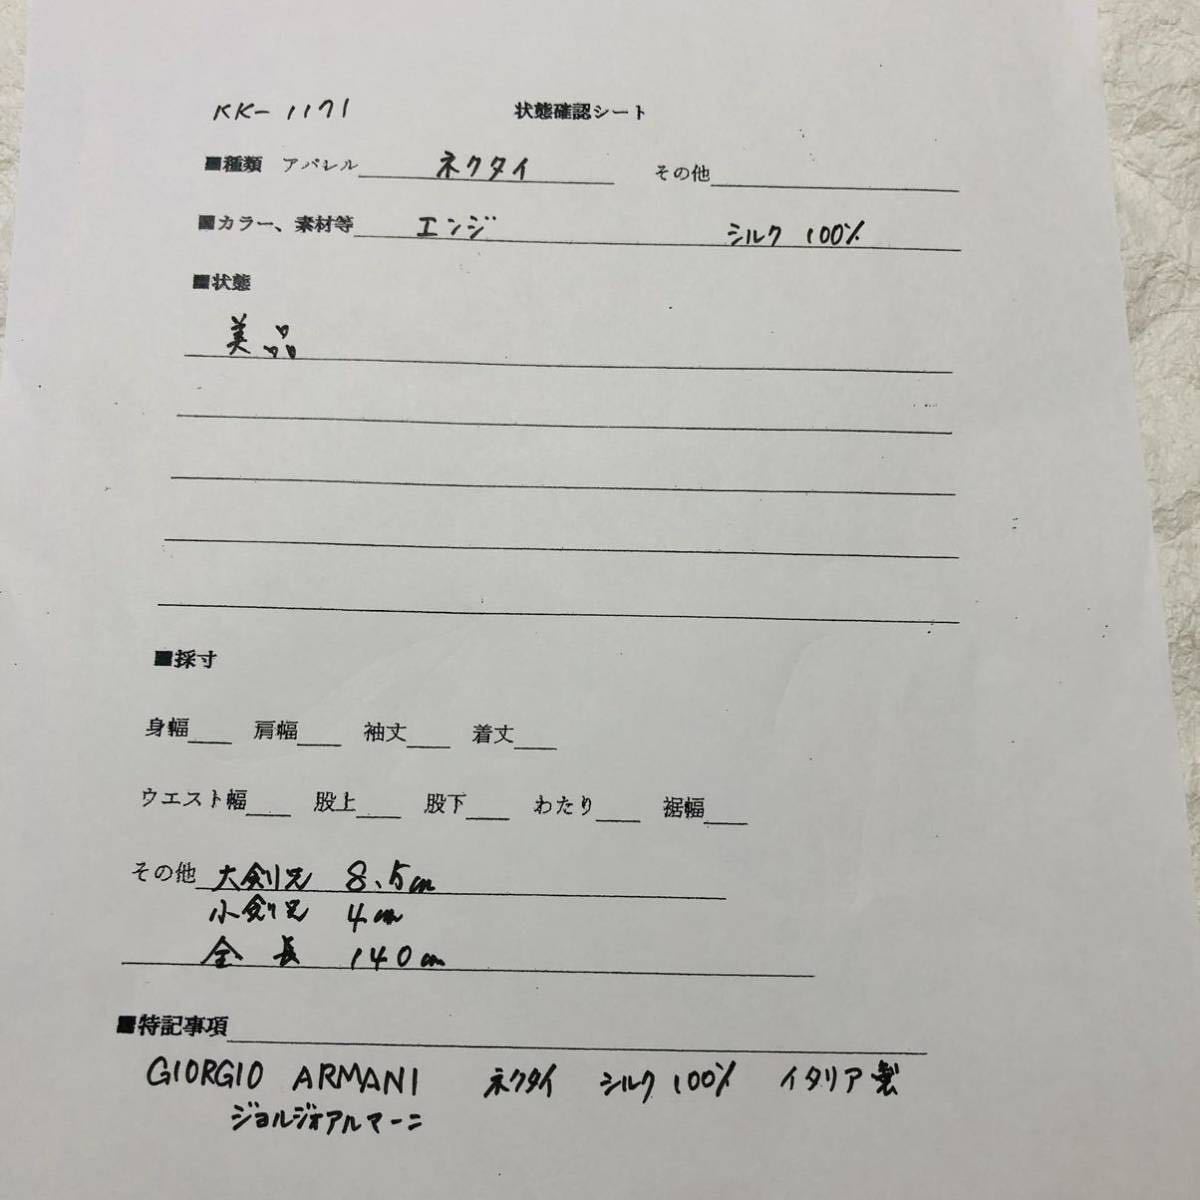 KK-1171 状態確認シート
■種類 アパレル ネクタイ その他
■カラー、素材等 エンジ シルク 100%
■状態
美品
■採寸
身幅 肩幅 袖丈 着丈
ウエスト幅 股上 股下 わたり 裾幅
その他 大剣先 8.5cm
小剣先 4cm
全長 140cm
■特記事項
GIORGIO ARMANI ネクタイ シルク 100% イタリア製
ジョルジオアルマーニ